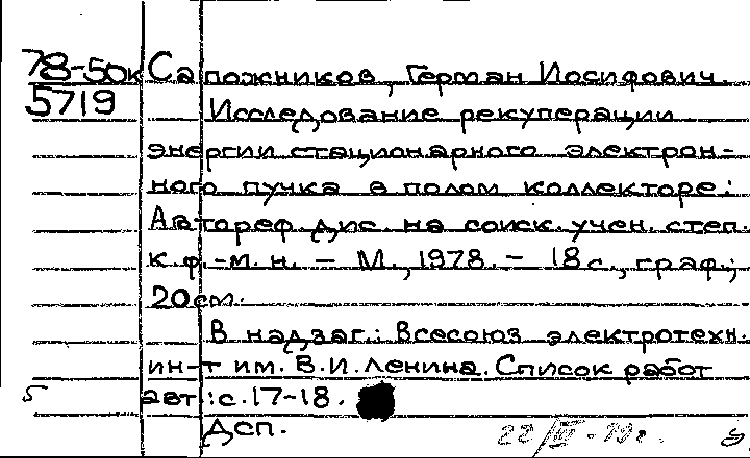 78-50к Сапожников, Герман Иосифович.
5719 Исследование рекуперации
энергии стационарного электрон-
ного пучка в полом коллекторе:
Автореф. дис. на соиск. учен. степ.
к.ф.-м.н. - М., 1978. - 18 с., граф.;
20 см.
В надзаг.: Всесоюз электротехн.
ин-т им. В.И. Ленина. Список работ
5 авт.: с. 17-18.
Дсп.